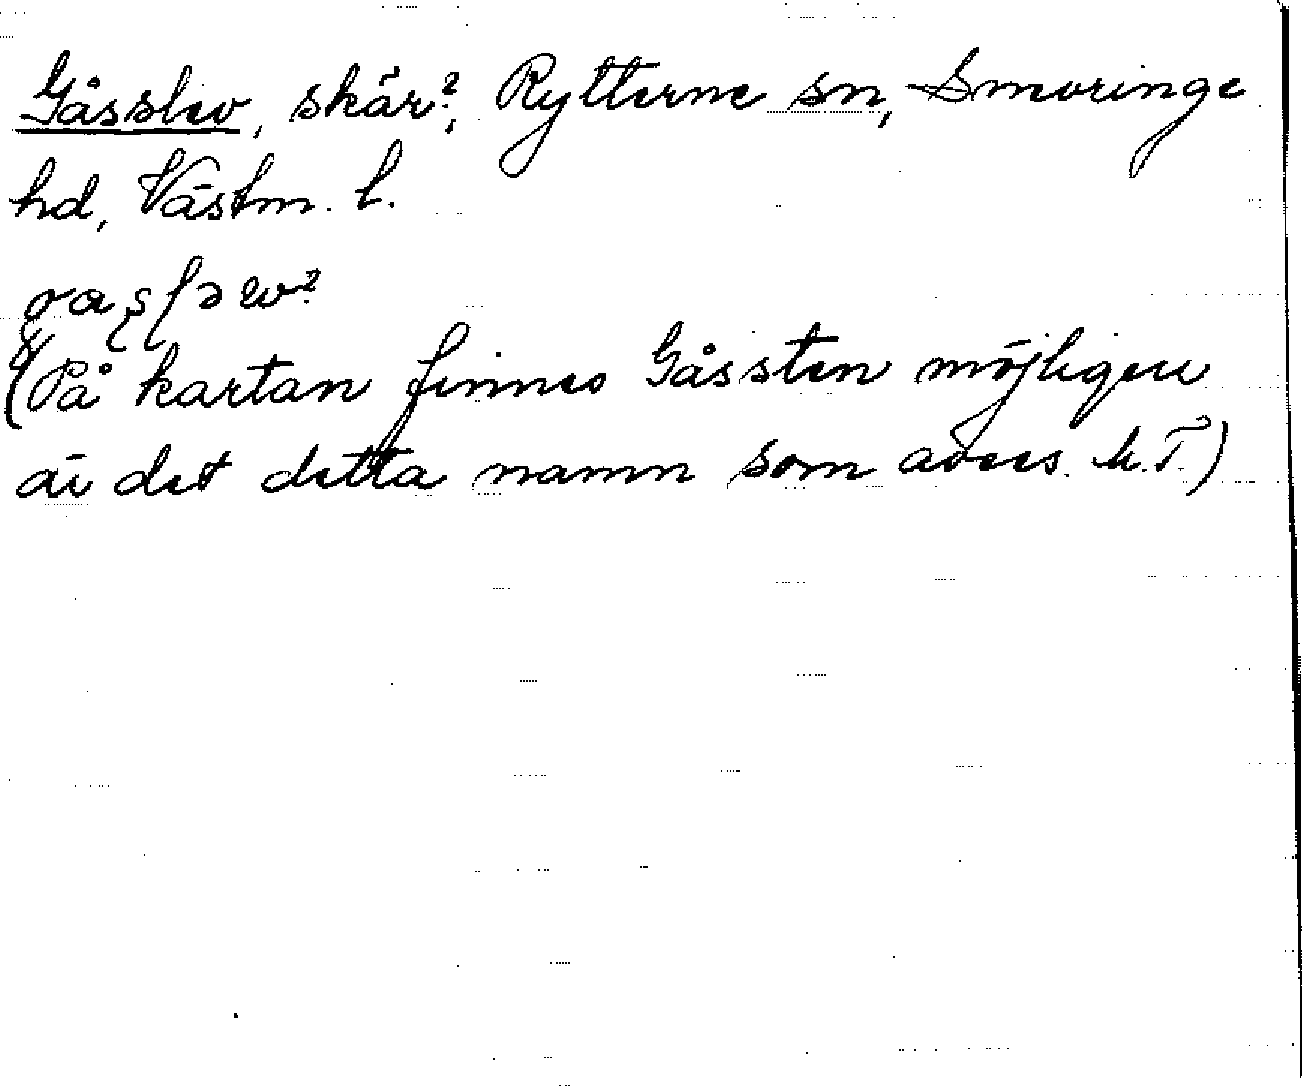 Gåsslev, skär?, Rytterne sn, Snevringe
hd, Västm. l.
(På kartan finnes Gåssten möjligen
är det detta namn som avses. M.T.)